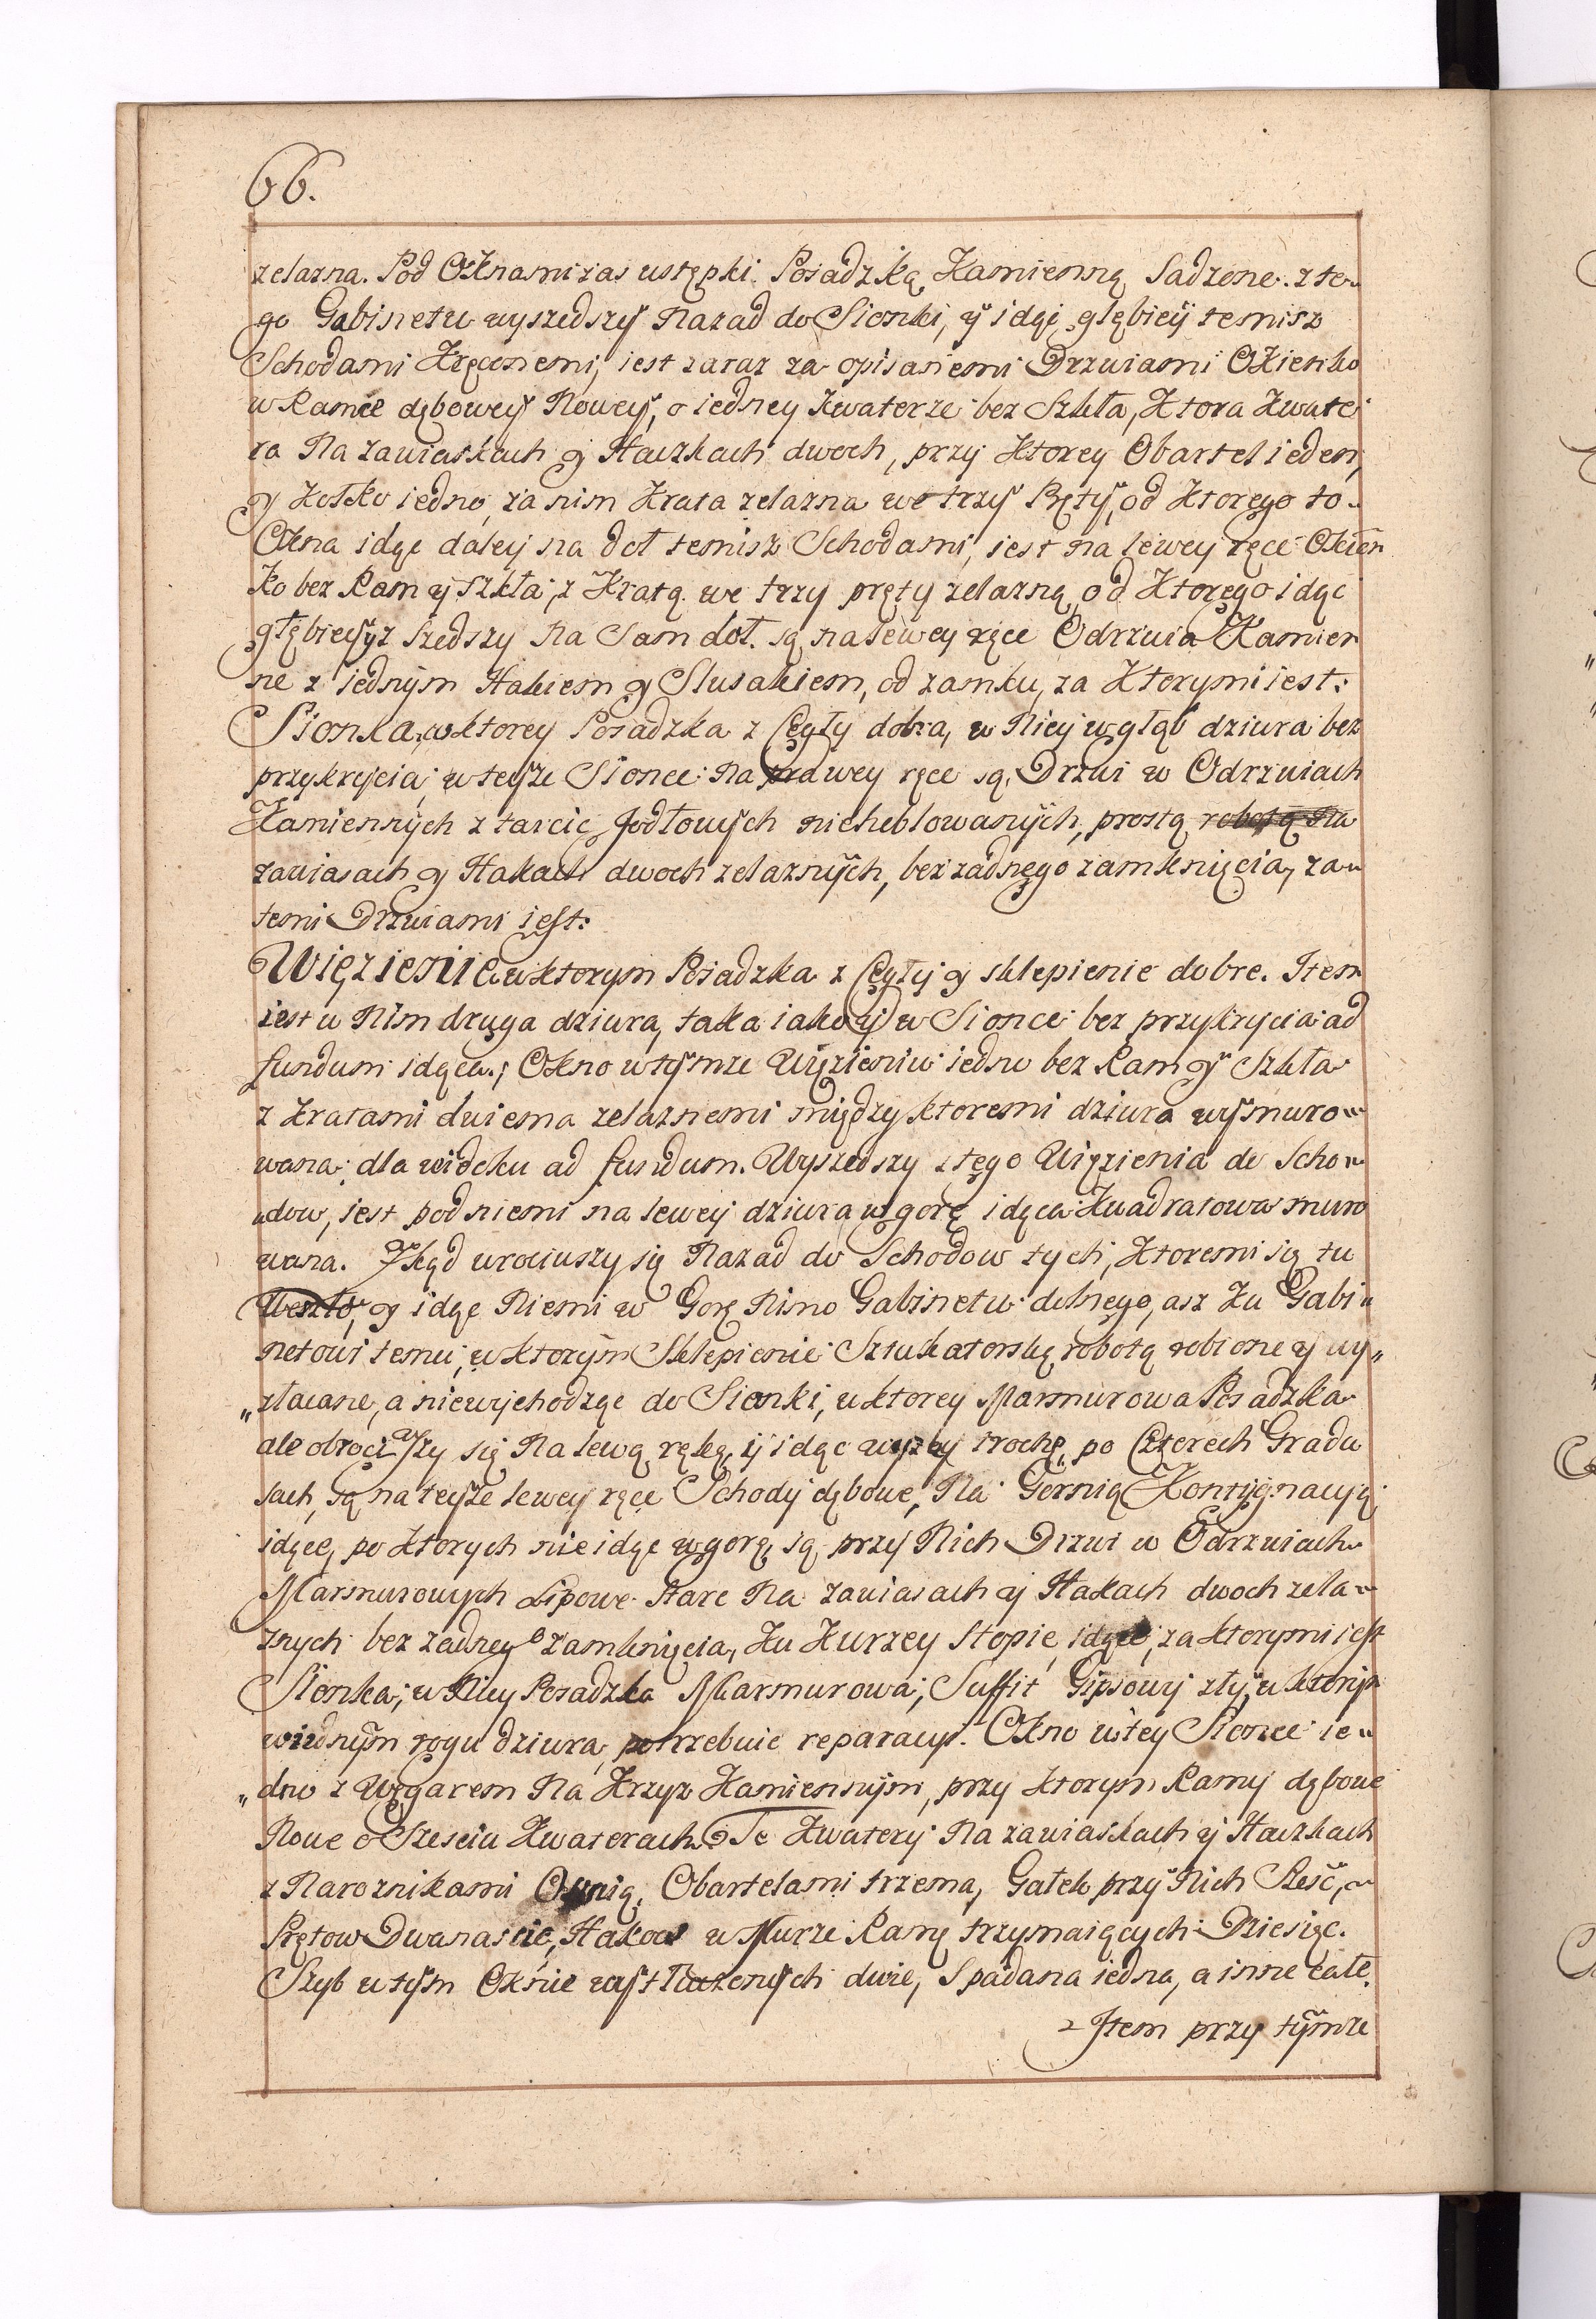 66.
zelazna. Pod Oknami zas ustępki Posadzką Kamienną Sadzone. z te-
go Gabinetu wyszedszy nazad do Sionki, y idąc głębiey temisz
Schodami Kręconemi, iest zaraz za opisanemi Drzwiami Okienko
w Ramie dębowey Nowey, o iedney kwaterze bez Szkła, Ktora Kwate-
ra Na zawiaskach y Haczkach dwoch, przy Ktorey Obartel ieden,
y Kołko iedno, za nim Krata zelazna we trzy Pręty, od Ktorego to-
Okna idąc daley na doł temisz Schodami, iest na lewey ręce Okien
ko bez Ram y Szkła, z Kratą we trzy pręty zelazną, od Ktorego idąc
głębiey, y z Szedszy Na Sam doł. są na lewey ręce Odrzwia Kamien
ne z iednym Hakiem y Slusakiem, od zamku, za Ktorymi iest:
Sionka, w ktorey Posadzka z Cegły dobra, w Niey w głąb dziura bez
przykrycia, w teyze Sionce na prawey ręce są Drzwi w Odrzwiach
Kamiennych z tarcic Jodłowych nieheblowanych, prostą robotą Na
zawiasach y Hakach dwoch zelaznych, bez zadnego zamknięcia, za-
temi Drzwiami iest:
Więzienie w ktorym Posadzka z Cegły y sklepienie dobre. Item
iest w Nim druga dziura, taka iako y w Sionce bez przykrycia ad
fundum idąca; Okno w tymze Więzieniu iedno bez Ram y Szkła
z Kratami dwiema zelaznemi między ktoremi dziura wymuro-
wana, dla widoku ad fundum. Wyszedszy z tego Więzienia do Scho-
dow, iest pod niemi na lewey dziura w gorę idąca Kwadratowa muro
wana. Zkąd wrociwszy się Nazad do Schodow tych, Ktoremi się tu
Weszło, y idąc Niemi w Gorę Nimo Gabinetu dolnego, asz Ku Gabi-
netowi temu, w ktorym Sklepienie Sztukatorską robotą robione y wy-
złacane, a niewychodząc do Sionki, w ktorey Marmurowa Posadzka
ale obrociwszy się Na lewą rękę, y idąc wyzey trochę, po Czterech Gradu
sach, są na teyze lewey ręce Schody dębowe, Na Gornią Kontygnacyą
idące, po Ktorych nie idąc w gorę, są przy Nich Drzwi w Odrzwiach
Marmurowych Lipowe Stare Na zawiasach y Hakach dwoch zela-
znych bez zadnego zamknięcia, Ku Kurzey Stopie, idące, za ktorymi iest
Sionka, w Niey Posadzka Marmurowa, Suffit Gipsowy zły, w ktorym
w iednym rogu dziura, potrzebuie reparacyi. Okno w tey Sionce ie-
dno z Węgarem Na Krzyz Kamiennym, przy Ktorym Ramy dębowe
Nowe o Szesciu Kwaterach. Te Kwatery Na zawiaskach y Haczkach
z Naroznikami Osmią, Obartelami trzema, Gałek przy Nich Szesć,
Prętow Dwanascie, Hakow w Murze Ramy trzymaiących Dziesięc.
Szyb w tym Oknie wytłuczonych dwie, Spadana iedna, a inne całe.
Item przy tymze